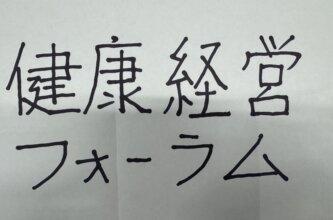 健康経営
フォーラム